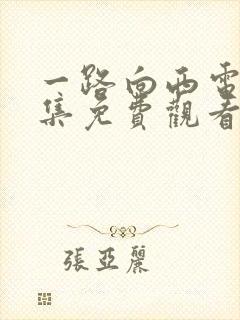 一路向西電
集免費觀看
張亞麗